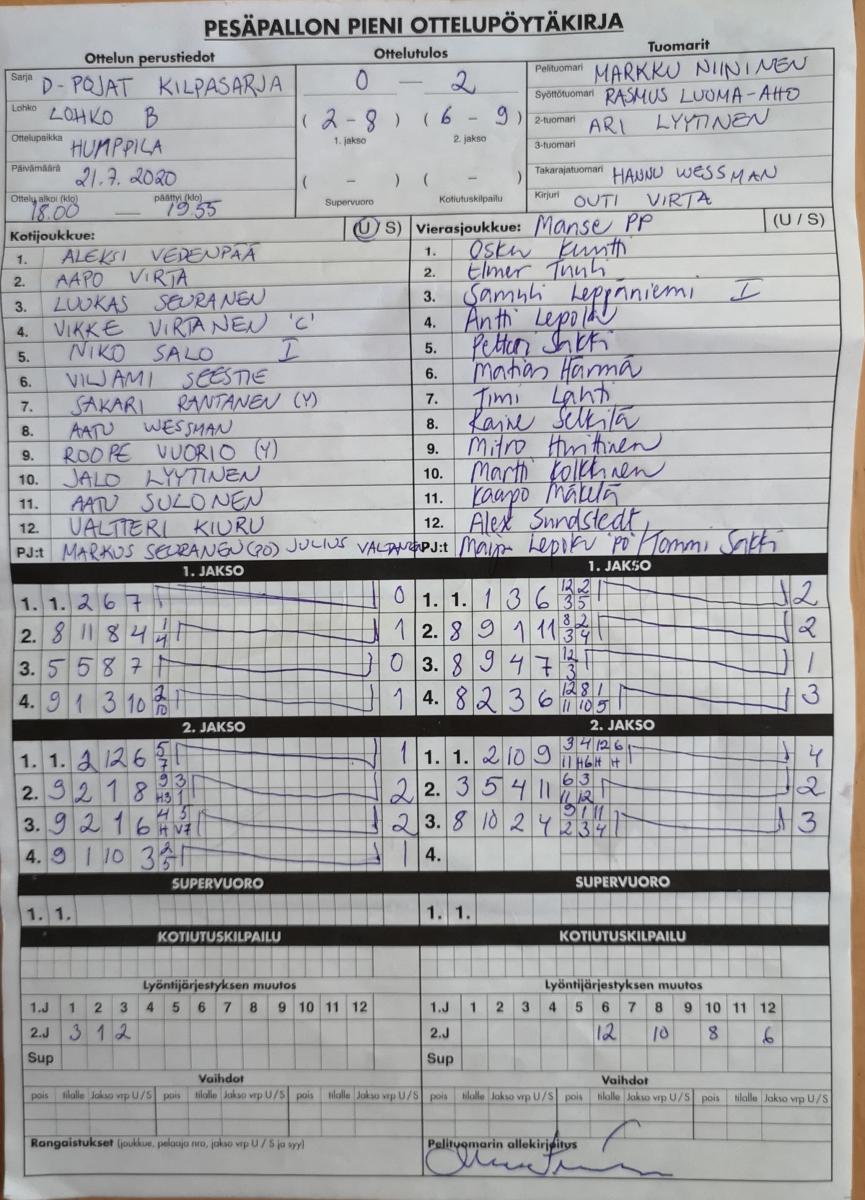 PESÄPALLON PIENI OTTELUPÖYTÄKIRJA
Ottelun perustiedot
Sarja D-POJAT KILPASARJA
Lohko LOHKO B
Ottelupaikka HUMPPILA
Päivämäärä 21.7. 2020
Ottelu alkoi (klo) päättyi (klo)
18.00 — 19.55
Ottelutulos
0 — 2
( 2 - 8 ) ( 6 - 9 )
1. jakso 2. jakso
( - ) ( - )
Supervuoro Kotiutuskilpailu
Tuomarit
Pelituomari MARKKU NIININEN
Syöttötuomari RASMUS LUOMA-AHO
2-tuomari ARI LYYTINEN
3-tuomari
Takarajatuomari HANNU WESSMAN
Kirjuri OUTI VIRTA
Kotijoukkue: (U/S)
1. ALEKSI VEDENPÄÄ
2. AAPO VIRTA
3. LUUKAS SEURANEN
4. VIKKE VIRTANEN 'C'
5. NIKO SALO I
6. VILJAMI SEESTIE
7. SAKARI RANTANEN (Y)
8. AATU WESSMAN
9. ROOPE VUORIO (Y)
10. JALO LYYTINEN
11. AATU SULONEN
12. VALTTERI KIURU
PJ:t MARKUS SEURANEN (PO) JULIUS VALTANEN
Vierasjoukkue: Manse PP (U / S)
1. Osku Kuutti
2. Elmer Tuuli
3. Samuli Leppäniemi I
4. Antti Lepola
5. Petteri Sakki
6. Matias Härmä
7. Timi Lahti
8. Raine Selkilä
9. Mitro Huittinen
10. Martti Kolkkinen
11. Kaapo Mäkelä
12. Alex Sundstedt
PJ:t Lepiku PO Tommi Sakki
1. JAKSO
1. 1. 2 6 7 0
2. 8 11 8 4 1 4 1
3. 5 5 8 7 0
4. 9 1 3 10 2 10 1
1. JAKSO
1. 1. 1 3 6 12 2 3 5 2
2. 8 9 1 11 8 2 3 4 2
3. 8 9 4 7 12 3 1
4. 8 2 3 6 12 8 1 11 10 5 3
2. JAKSO
1. 1. 2 12 6 5 7 1
2. 9 2 1 8 9 3 H3 1 2
3. 9 2 1 6 4 5 H V7 2
4. 9 1 10 3 2 5 1
2. JAKSO
1. 1. 2 10 9 3 4 12 6 11 H6 H H 4
2. 3 5 4 11 6 3 11 12 2
3. 8 10 2 4 9 1 11 2 3 4 3
4.
SUPERVUORO
1. 1.
SUPERVUORO
1. 1.
KOTIUTUSKILPAILU
KOTIUTUSKILPAILU
Lyöntijärjestyksen muutos
1.J 1 2 3 4 5 6 7 8 9 10 11 12
2.J 3 1 2
Sup
Lyöntijärjestyksen muutos
1.J 1 2 3 4 5 6 7 8 9 10 11 12
2.J 12 10 8 6
Sup
Vaihdot
pois tilalle Jakso vrp U/S pois tilalle Jakso vrp U/S pois tilalle Jakso vrp U/S
Vaihdot
pois tilalle Jakso vrp U/S pois tilalle Jakso vrp U/S pois tilalle Jakso vrp U/S
Rangaistukset (joukkue, pelaaja nro, jakso vrp U / S ja syy)
Pelituomarin allekirjoitus